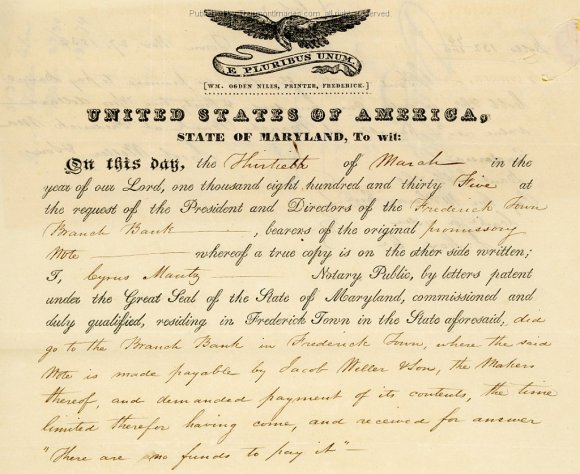 E PLURIBUS UNUM.
[WM. OGDEN NILES, PRINTER, FREDERICK.]
UNITED STATES OF AMERICA,
STATE OF MARYLAND, To wit:
On this day, the Thirtieth of March in the
year of our Lord, one thousand eight hundred and thirty Five at
the request of the President and Directors of the Frederick Town
Branch Bank , bearers of the original promissory
Note whereof a true copy is on the other side written;
I, Cyrus Mantz Notary Public, by letters patent
under the Great Seal of the State of Maryland, commissioned and
duly qualified, residing in Frederick Town in the State aforesaid, did
go to the Branch Bank in Frederick Town, where the said
Note is made payable by Jacob Weller & Son, the Makers
thereof, and demanded payment of its contents, the time
limited therefor having come, and received for answer
"There are no funds to pay it" –